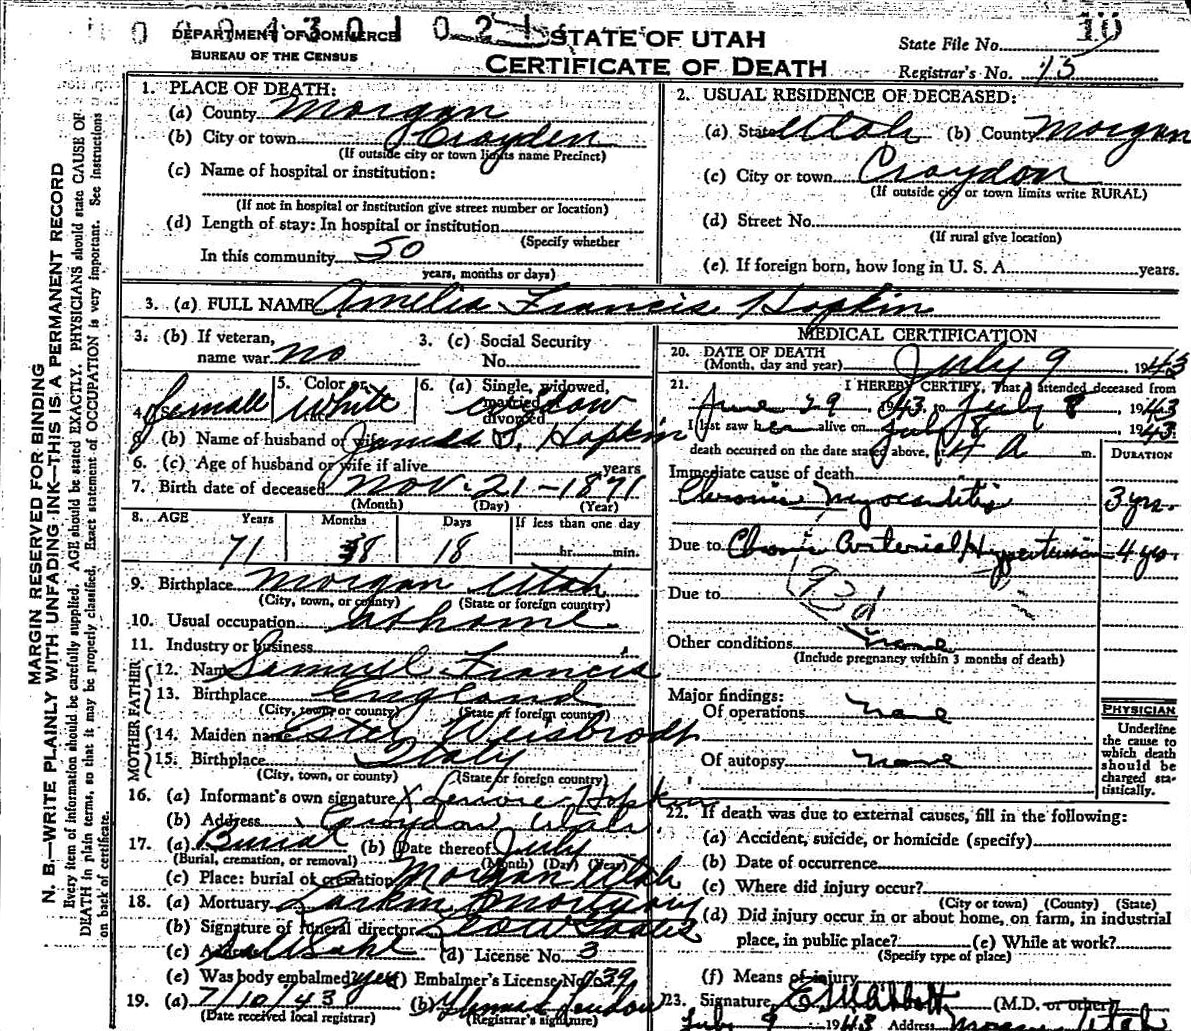 DEPARTMENT OF COMMERCE
BUREAU OF THE CENSUS
STATE OF UTAH
CERTIFICATE OF DEATH
State File No. 10
Registrar's No. 15
MARGIN RESERVED FOR BINDING
N. B.—WRITE PLAINLY WITH UNFADING INK—THIS IS A PERMANENT RECORD
Every item of information should be carefully supplied. AGE should be stated EXACTLY. PHYSICIANS should state CAUSE OF
DEATH in plain terms, so that it may be properly classified. Exact statement of OCCUPATION is very important. See instructions
on back of certificate.
1. PLACE OF DEATH:
(a) County Morgan
(b) City or town Croyden
(If outside city or town limits name Precinct)
(c) Name of hospital or institution:
(If not in hospital or institution give street number or location)
(d) Length of stay: In hospital or institution
(Specify whether
In this community 50
years, months or days)
2. USUAL RESIDENCE OF DECEASED:
(a) State Utah (b) County Morgan
(c) City or town Croydon
(If outside city or town limits write RURAL)
(d) Street No.
(If rural give location)
(e) If foreign born, how long in U. S. A. years.
3. (a) FULL NAME Amelia Francis Hopkin
3. (b) If veteran,
name war no
3. (c) Social Security
No.
4. Sex female
5. Color or White
6. (a) Single, widowed,
married,
divorced widow
6. (b) Name of husband or wife James S. Hopkin
6. (c) Age of husband or wife if alive years
7. Birth date of deceased Nov. 21 - 1871
(Month) (Day) (Year)
8. AGE Years Months Days If less than one day
71 8 18 hr. min.
9. Birthplace Morgan Utah
(City, town, or county) (State or foreign country)
10. Usual occupation at home
11. Industry or business
FATHER
12. Name Samuel Francis
13. Birthplace England
(City, town, or county) (State or foreign country)
MOTHER
14. Maiden name Ester Weisbrodt
15. Birthplace Italy
(City, town, or county) (State or foreign country)
16. (a) Informant's own signature X Lenore Hopkin
(b) Address Croydon Utah
17. (a) Burial (b) Date thereof July
(Burial, cremation, or removal) (Month) (Day) (Year)
(c) Place: burial or cremation Morgan Utah
18. (a) Mortuary Larkin Mortuary
(b) Signature of funeral director
(c) Address (d) License No. 3
(e) Was body embalmed yes (f) Embalmer's License No. 139
19. (a) 7/10/43 (b)
(Date received local registrar) (Registrar's signature)
MEDICAL CERTIFICATION
20. DATE OF DEATH
(Month, day and year) July 9 1943
21. I HEREBY CERTIFY, That I attended deceased from
June 29 1943 to July 8, 1943
I last saw her alive on July 8 1943
death occurred on the date stated above, at 4 A m.
DURATION
Immediate cause of death
Chronic Myocarditis 3 yrs.
Due to Chronic Arterial Hypertension 4 yrs.
93d
Due to
Other conditions none
(Include pregnancy within 3 months of death)
Major findings:
Of operations none
Of autopsy none
PHYSICIAN
Underline
the cause to
which death
should be
charged sta-
tistically.
22. If death was due to external causes, fill in the following:
(a) Accident, suicide, or homicide (specify)
(b) Date of occurrence
(c) Where did injury occur?
(City or town) (County) (State)
(d) Did injury occur in or about home, on farm, in industrial
place, in public place? (e) While at work?
(Specify type of place)
(f) Means of injury
23. Signature E. M. Abbott (M.D. or other)
July 9 1943 Address Morgan Utah